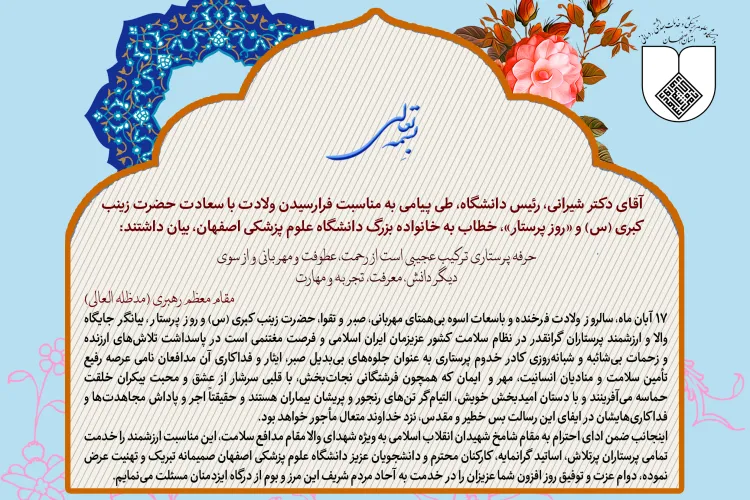 دانشگاه علوم پزشکی و خدمات بهداشتی درمانی
استان اصفهان
بسمه تعالی
آقای دکتر شیرانی، رئیس دانشگاه، طی پیامی به مناسبت فرارسیدن ولادت با سعادت حضرت زینب
کبری (س) و «روز پرستار»، خطاب به خانواده بزرگ دانشگاه علوم پزشکی اصفهان، بیان داشتند:
حرفه پرستاری ترکیب عجیبی است از رحمت، عطوفت و مهربانی و از سوی
دیگر دانش، معرفت، تجربه و مهارت
مقام معظم رهبری (مدظله العالی)
۱۷ آبان ماه، سالروز ولادت فرخنده و باسعات اسوه بی‌همتای مهربانی، صبر و تقوا، حضرت زینب کبری (س) و روز پرستار، بیانگر جایگاه
والا و ارزشمند پرستاران گرانقدر در نظام سلامت کشور عزیزمان ایران اسلامی و فرصت مغتنمی است در پاسداشت تلاش‌های ارزنده
و زحمات بی‌شائبه و شبانه‌روزی کادر خدوم پرستاری به عنوان جلوه‌های بی‌بدیل صبر، ایثار و فداکاری آن مدافعان نامی عرصه رفیع
تأمین سلامت و منادیان انسانیت، مهر و ایمان که همچون فرشتگانی نجات‌بخش، با قلبی سرشار از عشق و محبت بیکران خلقت
حماسه می‌آفرینند و با دستان امیدبخش خویش، التیام‌گر تن‌های رنجور و پریشان بیماران هستند و حقیقتا اجر و پاداش مجاهدت‌ها و
فداکاری‌هایشان در ایفای این رسالت بس خطیر و مقدس، نزد خداوند متعال مأجور خواهد بود.
اینجانب ضمن ادای احترام به مقام شامخ شهیدان انقلاب اسلامی به ویژه شهدای والا مقام مدافع سلامت، این مناسبت ارزشمند را خدمت
تمامی پرستاران پرتلاش، اساتید گرانمایه، کارکنان محترم و دانشجویان عزیز دانشگاه علوم پزشکی اصفهان صمیمانه تبریک و تهنیت عرض
نموده، دوام عزت و توفیق روز افزون شما عزیزان را در خدمت به آحاد مردم شریف این مرز و بوم از درگاه ایزدمنان مسئلت می‌نمایم.